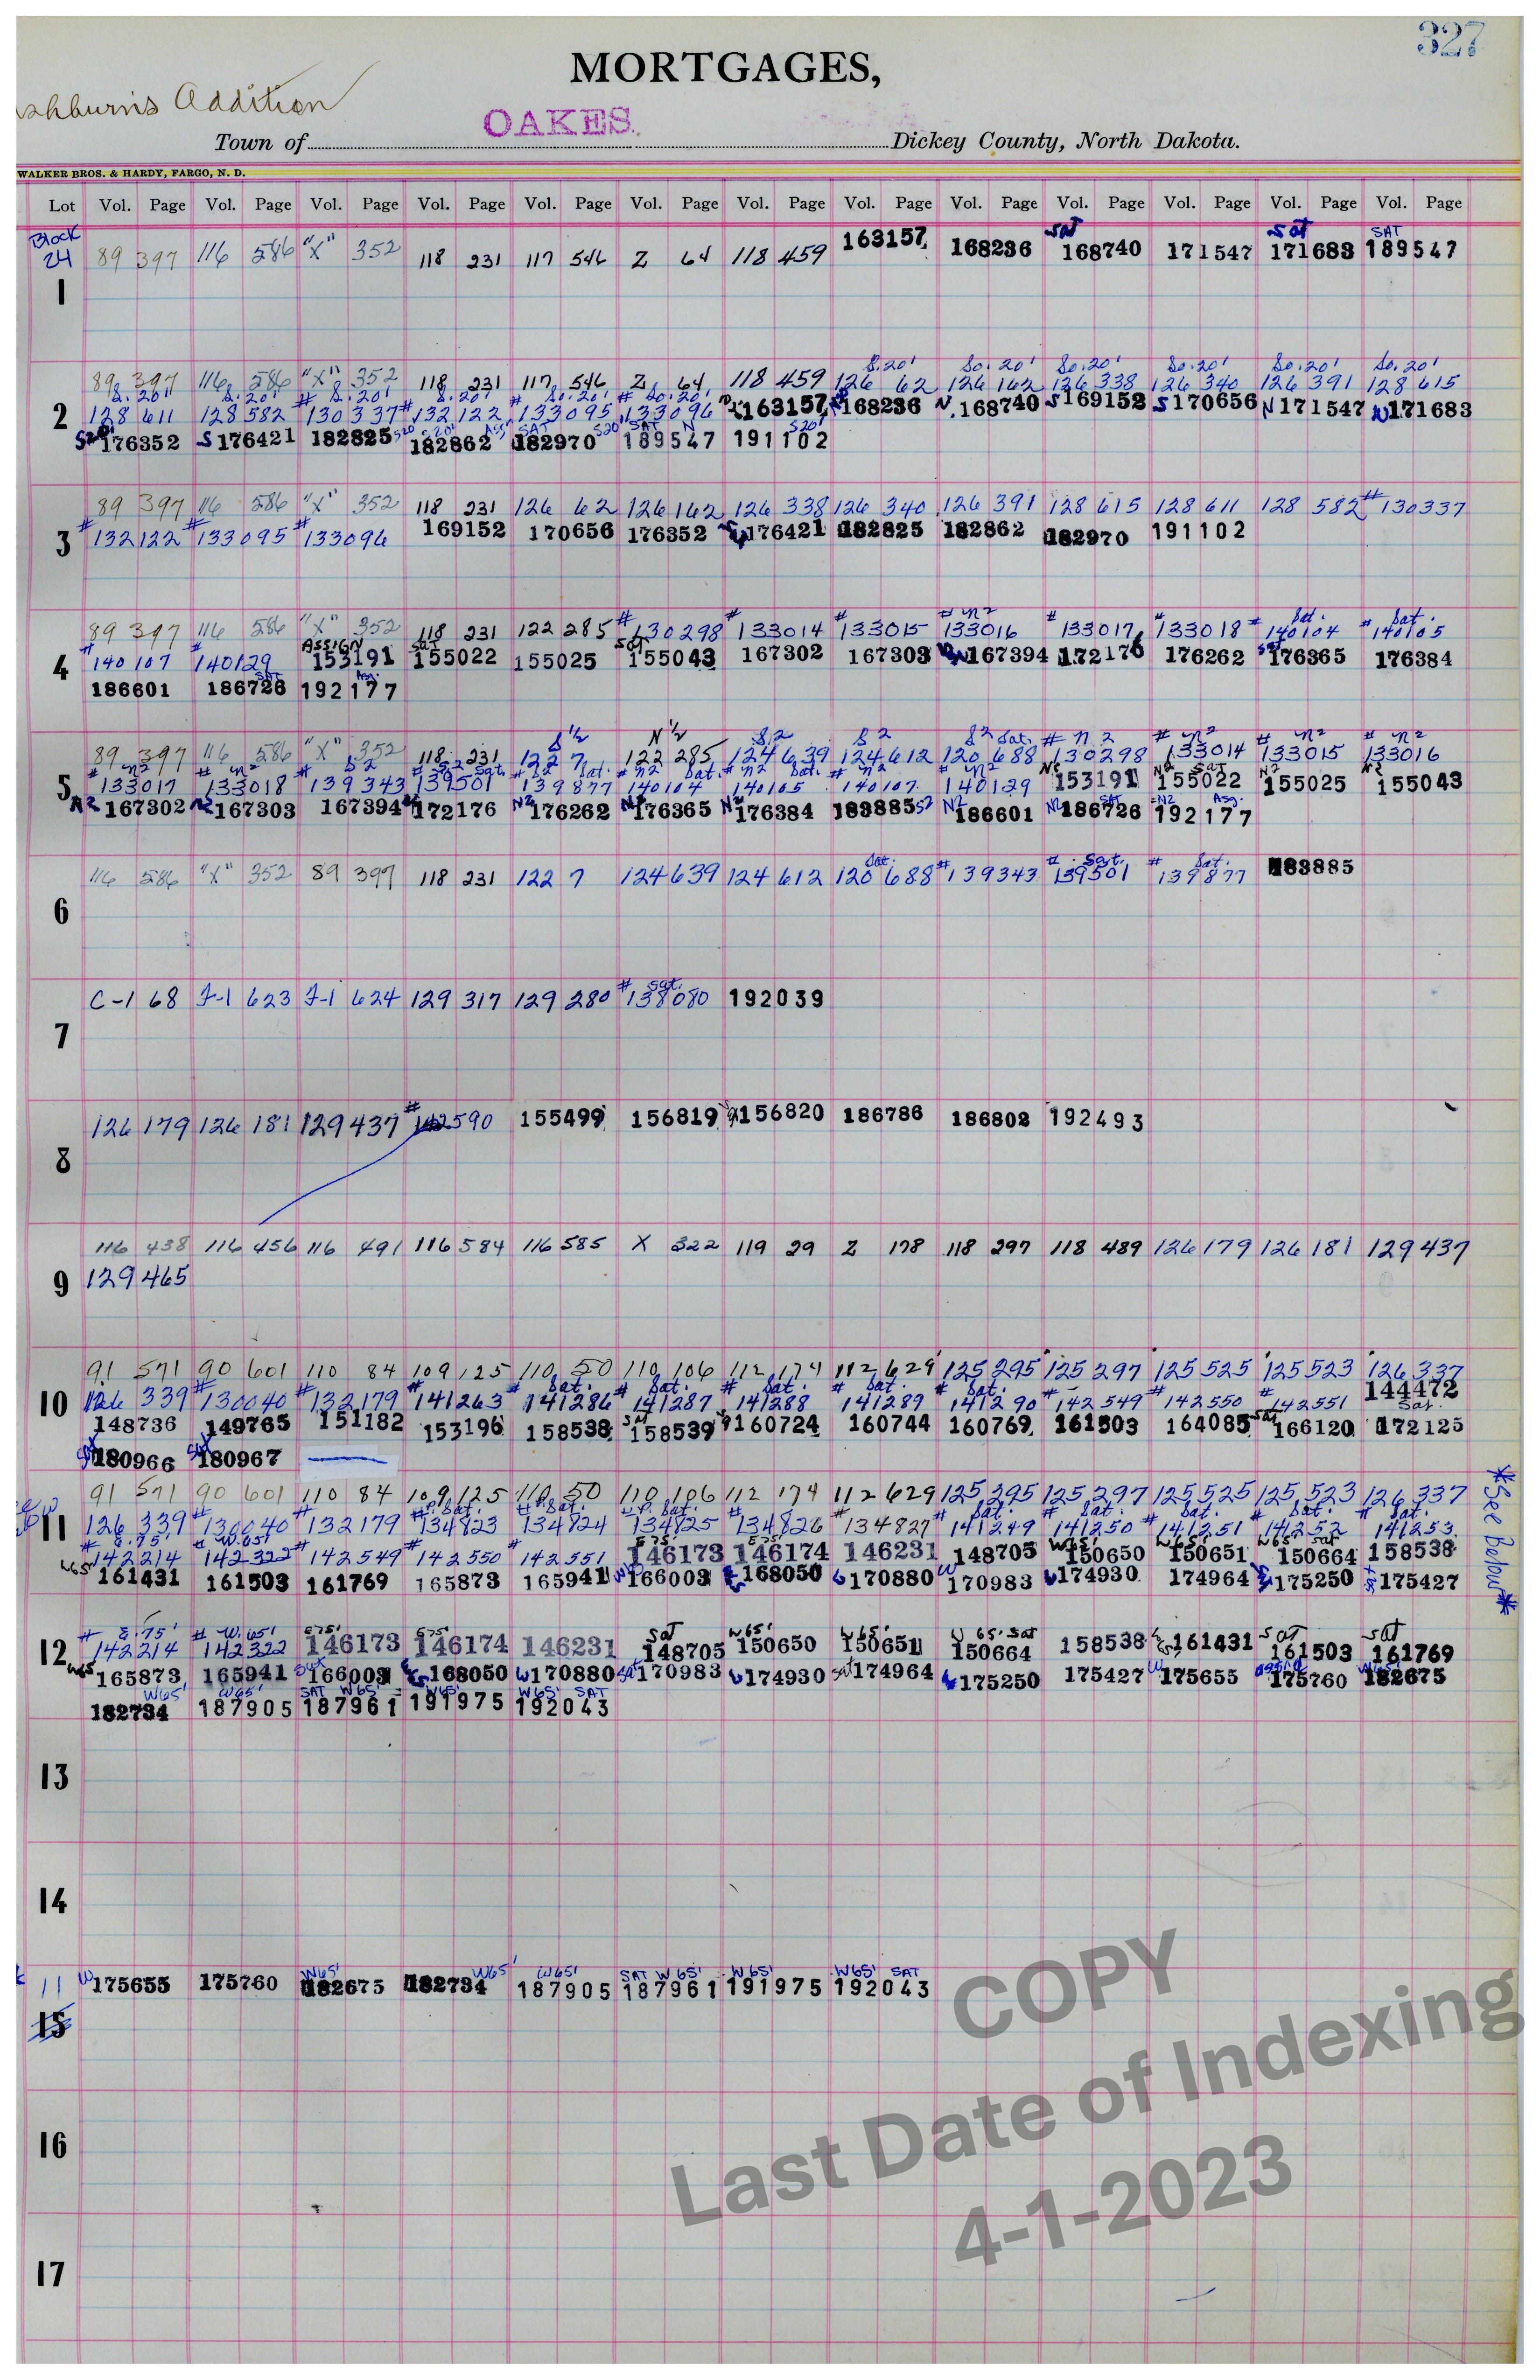 327
MORTGAGES,
shburn's Addition
OAKES.
Town of Dickey County, North Dakota.
WALKER BROS. & HARDY, FARGO, N. D.
Lot Vol. Page Vol. Page Vol. Page Vol. Page Vol. Page Vol. Page Vol. Page Vol. Page Vol. Page Vol. Page Vol. Page Vol. Page Vol. Page
Block Sat Sat SAT
24 89 397 116 586 "X" 352 118 231 117 546 Z 64 118 459 163157 168236 168740 171547 171683 189547
1
S.20' So.20' So.20' So.20' So.20' So.20'
89 397 116 586 "X" 352 118 231 117 546 Z 64 118 459 126 62 126 162 126 338 126 340 126 391 128 615
S.20' S.20' # S.20' S.20' # So.20' # So.20'
2 128 611 128 582 130337 #132122 133095 133096 163157 168236 N 168740 S 169152 S 170656 N 171547 N 171683
S20' 176352 S 176421 182825 S20' 182862 S20' Asg SAT 182970 S20' SAT N 189547 S20' 191102
89 397 116 586 "X" 352 118 231 126 62 126 162 126 338 126 340 126 391 128 615 128 611 128 582 #130337
3 #132122 #133095 #133096 169152 170656 176352 176421 182825 182862 182970 191102
# N2 Sat. Sat.
89 397 116 586 "X" 352 118 231 122 285 #130298 #133014 #133015 133016 #133017 #133018 #140104 #140105
ASSIGN Sat Sat Sat
4 #140107 #140129 153191 155022 155025 155043 167302 167303 167394 172176 176262 176365 176384
SAT Asg.
186601 186726 192177
S 1/2 N 1/2 S.2 S2 S2 Sat. # N2 # N2 # N2 # N2
89 397 116 586 "X" 352 118 231 122 7 122 285 124 639 124 612 120 688 130298 133014 133015 133016
# N2 # N2 # S2 # S2 Sat. # S2 Sat. # N2 Sat. # N2 Sat. # N2 # N2 N2 N2 SAT N2 N2
5 133017 133018 139343 139501 139877 140104 140105 140107 140129 153191 155022 155025 155043
N2 167302 N2 167303 167394 172176 N2 176262 N2 176365 N2 176384 183885 S2 N2 186601 N2 186726 SAT N2 192177 Asg.
Sat. # Sat. # Sat.
116 586 "X" 352 89 397 118 231 122 7 124 639 124 612 120 688 #139343 139501 139877 183885
6
# Sat.
C-1 68 F-1 623 F-1 624 129 317 129 280 138080 192039
7
126 179 126 181 129 437 #142590 155499 156819 156820 186786 186802 192493
8
116 438 116 456 116 491 116 584 116 585 X 322 119 29 Z 178 118 297 118 489 126 179 126 181 129 437
9 129 465
91 571 90 601 110 84 109 125 110 50 110 106 112 174 112 629 125 295 125 297 125 525 125 523 126 337
# Sat. # Sat. # Sat. # Sat. # Sat.
10 126 339 #130040 #132179 #141263 141286 141287 141288 141289 141290 #142549 #142550 #142551 144472
148736 149765 151182 153196 158538 Sat 158539 160724 160744 160769 161503 164085 Sat 166120 Sat. 172125
Sat 180966 Sat 180967
91 571 90 601 110 84 109 125 110 50 110 106 112 174 112 629 125 295 125 297 125 525 125 523 126 337
#P. Sat. #P. Sat. #P. Sat. # Sat. # Sat. # Sat. # Sat. # Sat.
11 126 339 #130040 #132179 134823 134824 134825 #134826 #134827 141249 141250 141251 141252 141253
# E.75' # W.65' E75' E75' W65' W65' W65' Sat
142214 142322 #142549 #142550 #142551 146173 146174 146231 148705 150650 150651 150664 158538
W65' 161431 161503 161769 165873 165941 166003 168050 170880 W 170983 174930 174964 175250 175427
*See Below*
# E.75' # W.65' E75' E75' Sat W65' W65' W 65' Sat Sat Sat
12 142214 142322 146173 146174 146231 148705 150650 150651 150664 158538 161431 161503 161769
W65' 165873 165941 Sat 166003 168050 W 170880 Sat 170983 174930 Sat 174964 175250 175427 W 175655 175760 W65' 182675
W65' W65' SAT W65' W65' W65' SAT
182734 187905 187961 191975 192043
13
14
W65' W65' W65' SAT W65' W65' W65' SAT
11 W 175655 175760 182675 182734 187905 187961 191975 192043
15
16
17
COPY
Last Date of Indexing
4-1-2023